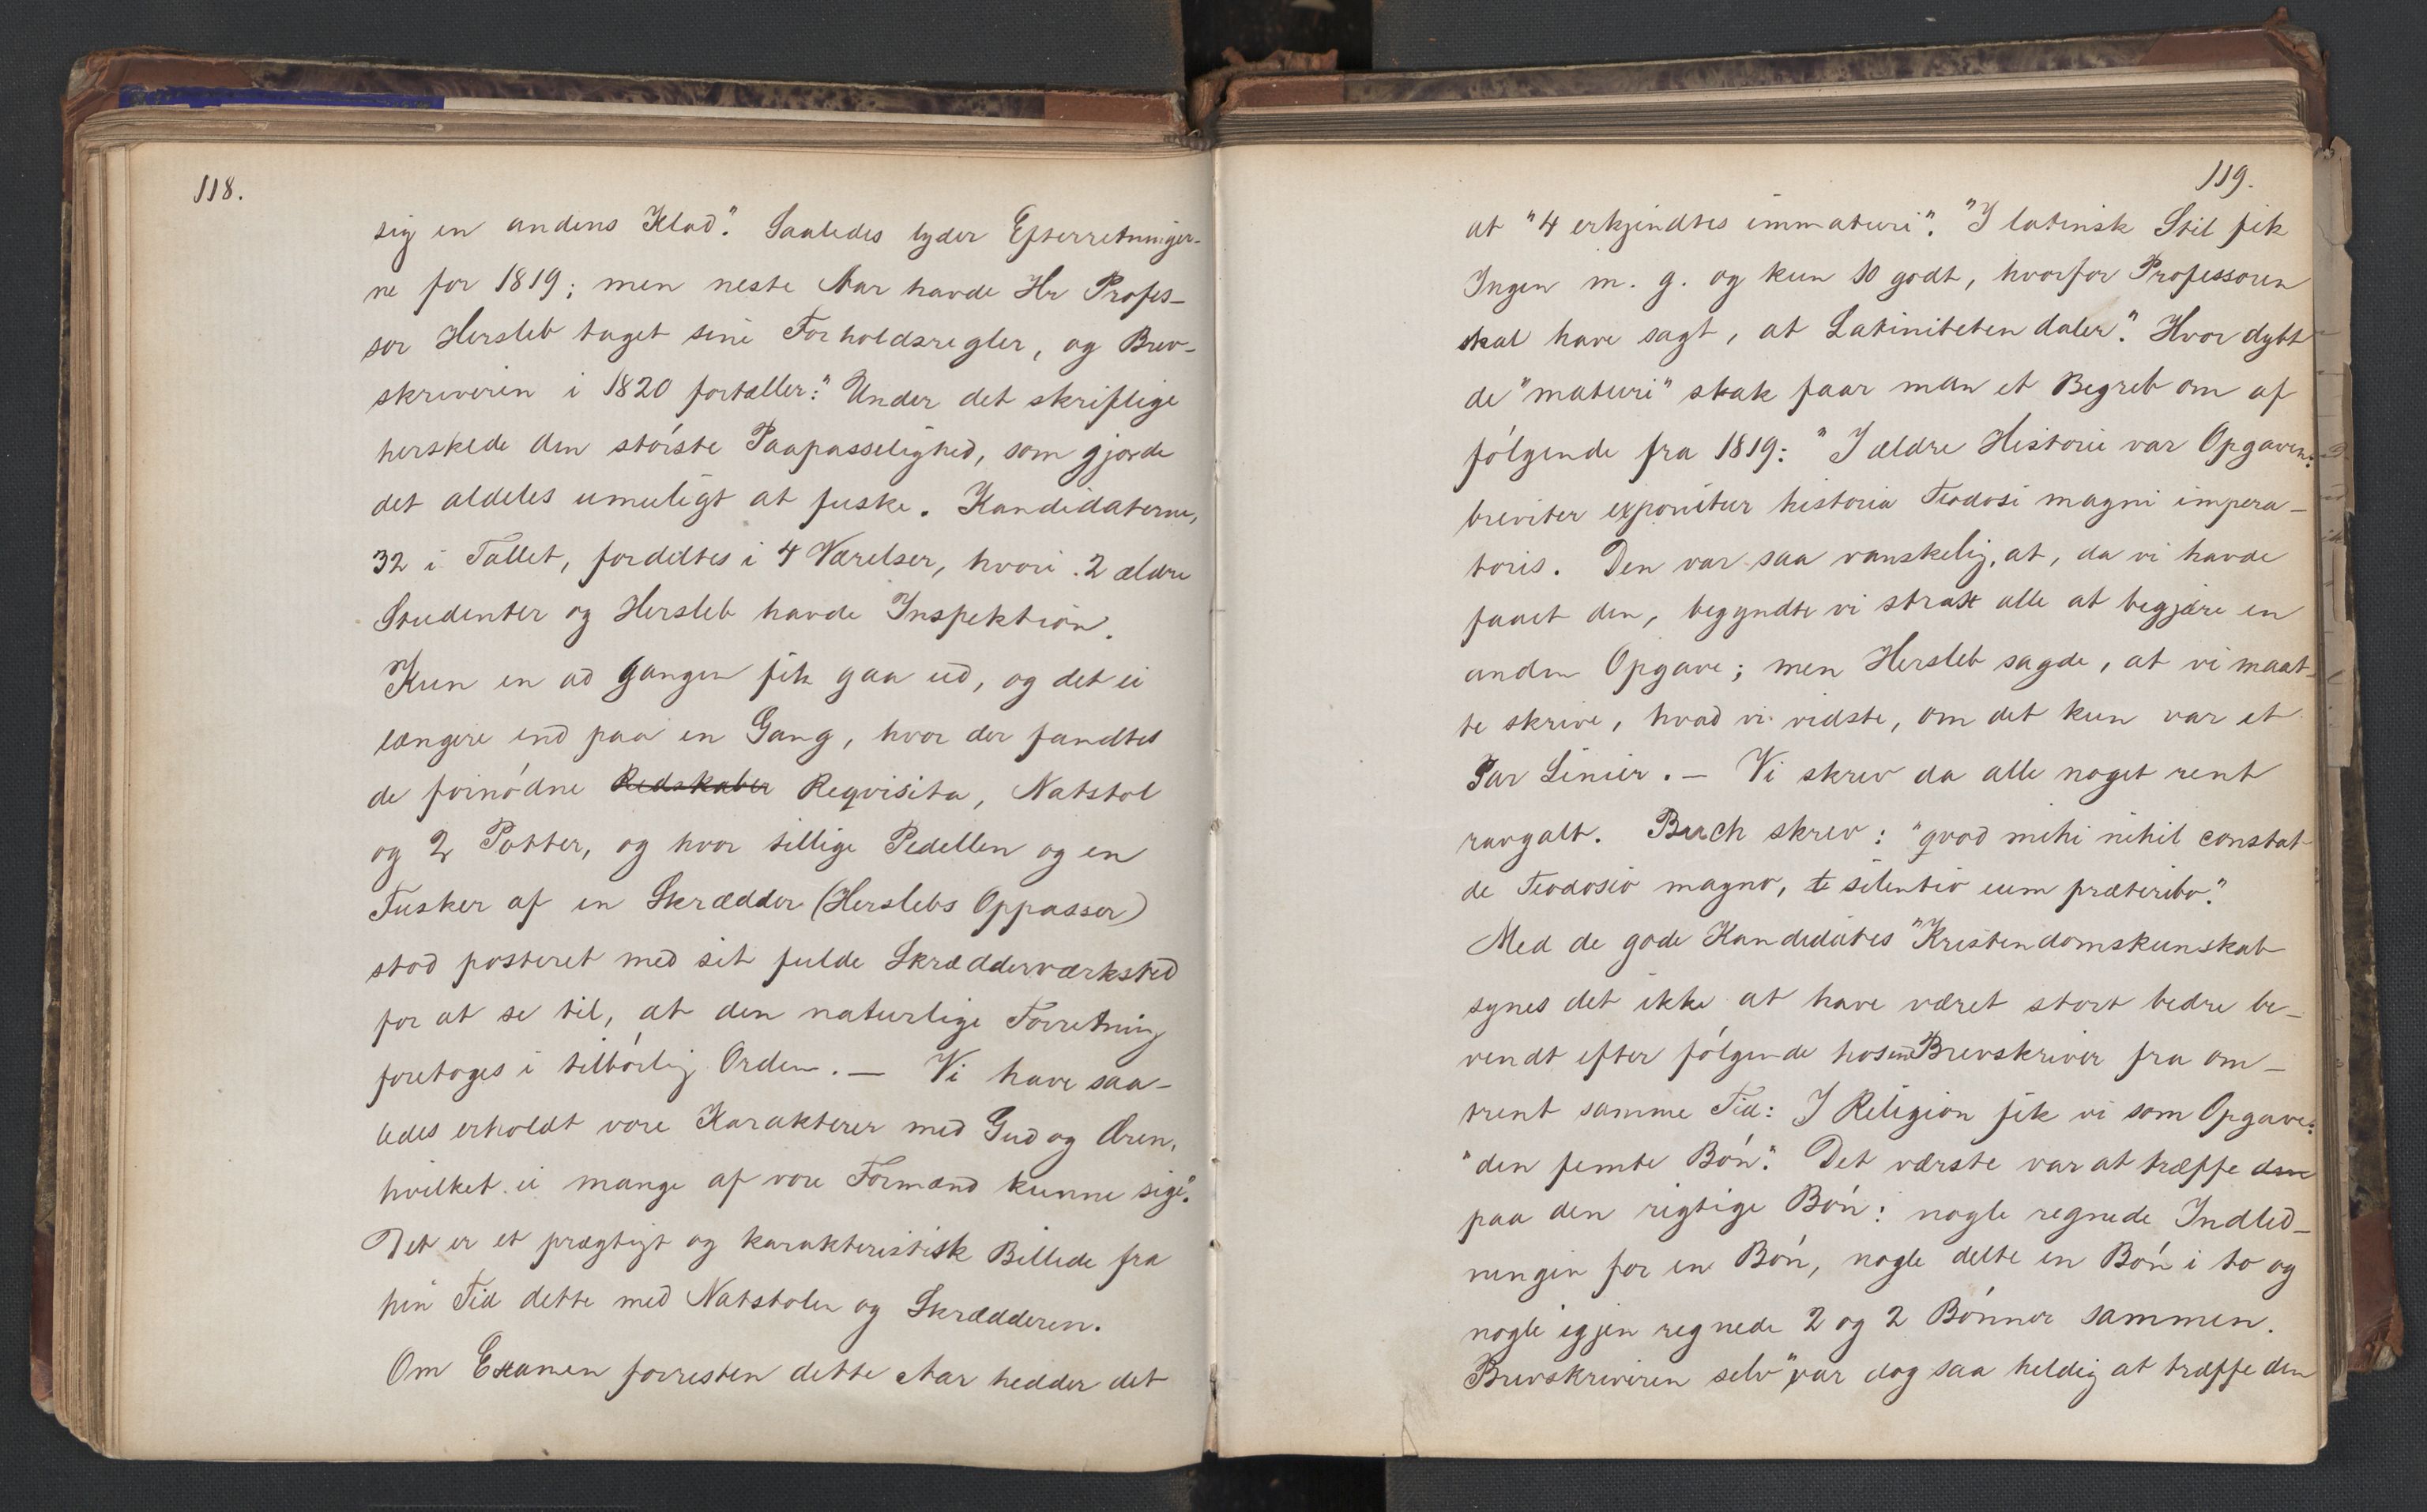 118.
sig en andens Klad". Saaledes lyder Efterretninger-
ne for 1819; men neste Aar havde Hr Profes-
sor Hersleb taget sine Forholdsregler, og Brev-
skriveren i 1820 fortæller: "Under det skriftlige
herskede den störste Paapasselighed, som gjorde
det aldeles umuligt at fuske. Kandidaterne,
32 i Tallet, fordeltes i 4 Værelser, hvori 2 ældre
Studenter og Hersleb havde Inspektion.
Kun en ad Gangen fik gaa ud, og det ei
længere end paa en Gang, hvor der fandtes
de fornódne Redskaber Reqvisita, Natstol
og 2 Potter, og hvor tillige Pedellen og en
Fusker af en Skrædder (Herslebs Oppasser)
stod posteret med sit fulde Skrædderværksted
for at se til, at den naturlige Forretning
foretoges i tilbórlig Orden. — Vi have saa-
ledes erholdt vore Karakterer med Gud og Æren,
hvilket ei mange af vore Formænd kunne sige".
Det er et prægtigt og karakteristisk Billede fra
hin Tid dette med Natstolen og Skrædderen.
Om Examen forresten dette Aar hedder det
119.
at "4 erkjendtes immaturi". "I latinsk Stil fik
Ingen m. g. og kun 10 godt, hvorfor Professoren
skal have sagt, at Latiniteten daler". Hvor dybt
de "maturi" stak faar man et Begreb om af
fólgende fra 1819: "I ældre Historie var Opgaven:
breviter exponitur historia Teodosi magni impera-
toris. Den var saa vanskelig, at, da vi havde
faaet den, begyndte vi strax alle at begjære en
anden Opgave; men Hersleb sagde, at vi maat-
te skrive, hvad vi vidste, om det kun var et
Par Linier. — Vi skrev da alle noget rent
ravgalt. Buch skrev: "qvod mihi nihil constat
de Teodosio magno, te silentio eum præteribo".
Med de gode Kandidates "Kristendomskunskab
synes det ikke at have været stort bedre be-
vendt efter fólgende hos en Brevskriver fra om-
trent samme Tid: I Religion fik vi som Opgave:
"den femte Bón". Det værste var at træffe den
paa den rigtige Bón: nogle regnede Indled-
ningen for en Bón, nogle delte en Bón i to og
nogle igjen regnede 2 og 2 Bónner sammen.
Brevskriveren selv "var dog saa heldig at træffe den